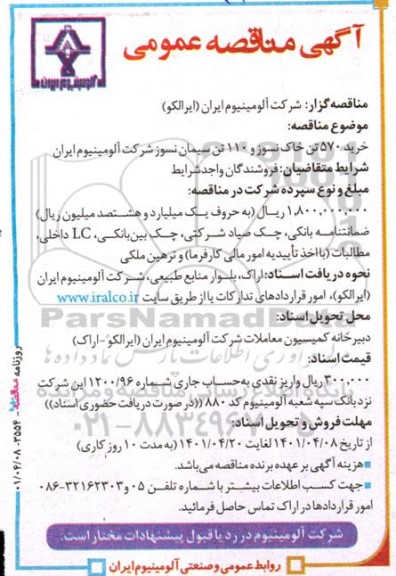 آگهی مناقصه عمومی
مناقصه گزار: شرکت آلومینیوم ایران (ایرالکو)
موضوع مناقصه:
خرید ۵۷۰ تن خاک نسوز و ۱۱۰ تن سیمان نسوز شرکت آلومینیوم ایران
شرایط متقاضیان: فروشندگان واجد شرایط
مبلغ و نوع سپرده شرکت در مناقصه:
۱،۸۰۰،۰۰۰،۰۰۰ ریـال (به حروف یـک میلیارد و هشـتصد میلیون ریال)
ضمانتنامـه بانکی، چـک صیاد شـرکتی، چـک بین‌بانکـی، LC داخلی،
مطالبات (با اخذ تأییدیه امور مالی کارفرما) و ترهین ملکی
نحوه دریافت اسـناد: اراک، بلـوار منابع طبیعی، شـرکت آلومینیوم ایران
(ایرالکو)، امور قراردادهای تدارکات یا از طریق سایت www.iralco.ir
محل تحویل اسناد:
دبیرخانه کمیسیون معاملات شرکت آلومینیوم ایران (ایرالکو-اراک)
قیمت اسناد:
۳۰۰،۰۰۰ ریال واریز نقدی به‌حساب جاری شماره ۱۲۰۰/۹۶ این شرکت
نزد بانک سپه شعبه آلومینیوم کد ۸۸۰ ((در صورت دریافت حضوری اسناد))
مهلت فروش و تحویل اسناد:
از تاریخ ۱۴۰۱/۰۴/۰۸ لغایت ۱۴۰۱/۰۴/۲۰ (به مدت ۱۰ روز کاری)
هزینه آگهی بر عهده برنده مناقصه می‌باشد.
جهت کسب اطلاعات بیشتر با شماره تلفن ۰۵ و ۳۲۱۶۲۳۰۳-۰۸۶
امور قراردادها در اراک تماس حاصل فرمائید.
شرکت آلومینیوم در رد یا قبول پیشنهادات مختار است.
روابط عمومی و صنعتی آلومینیوم ایران
روزنامه مناقصه ۳۵۵۴- ۰۱/۰۴/۰۸
ParsNamadData
۰۲۱-۸۸۳۴۹۶۷۰-۵